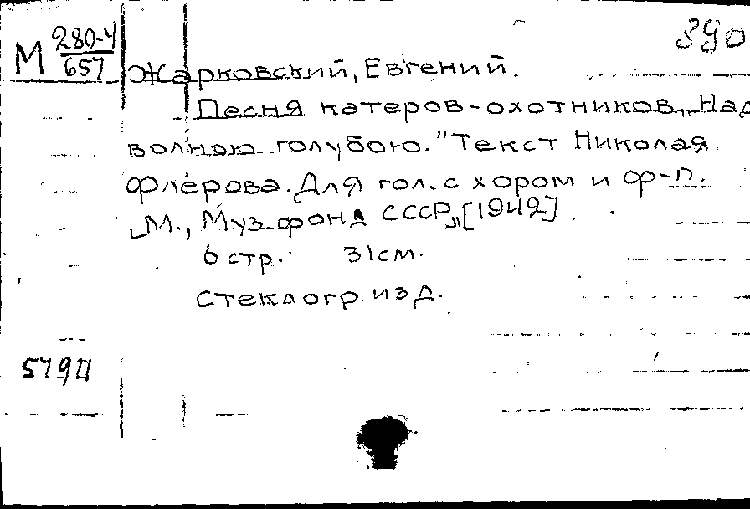 390
М 280-4
657
Жарковский, Евгений.
Песня катеров-охотников „Над
волною голубою." Текст Николая
Флерова. Для гол. с хором и ф-п.
М., Муз. фонд СССР, [1942]
6 стр. 31 см.
Стеклогр. изд.